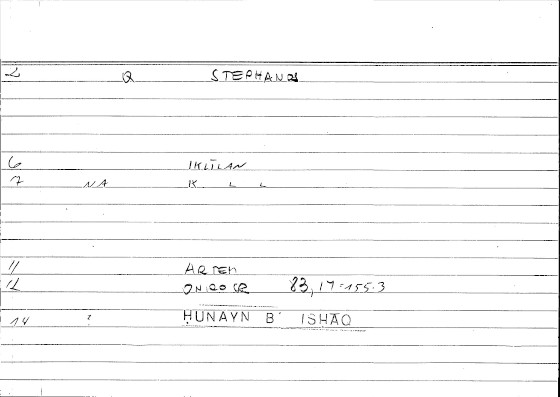 2 Q STEPHANOS
6 IKLĪLAN
7 NA K. L L
11 ARTEM
12 ONIROCR 83, 17 = 155.3
14 ? ḤUNAYN B' ISHĀQ